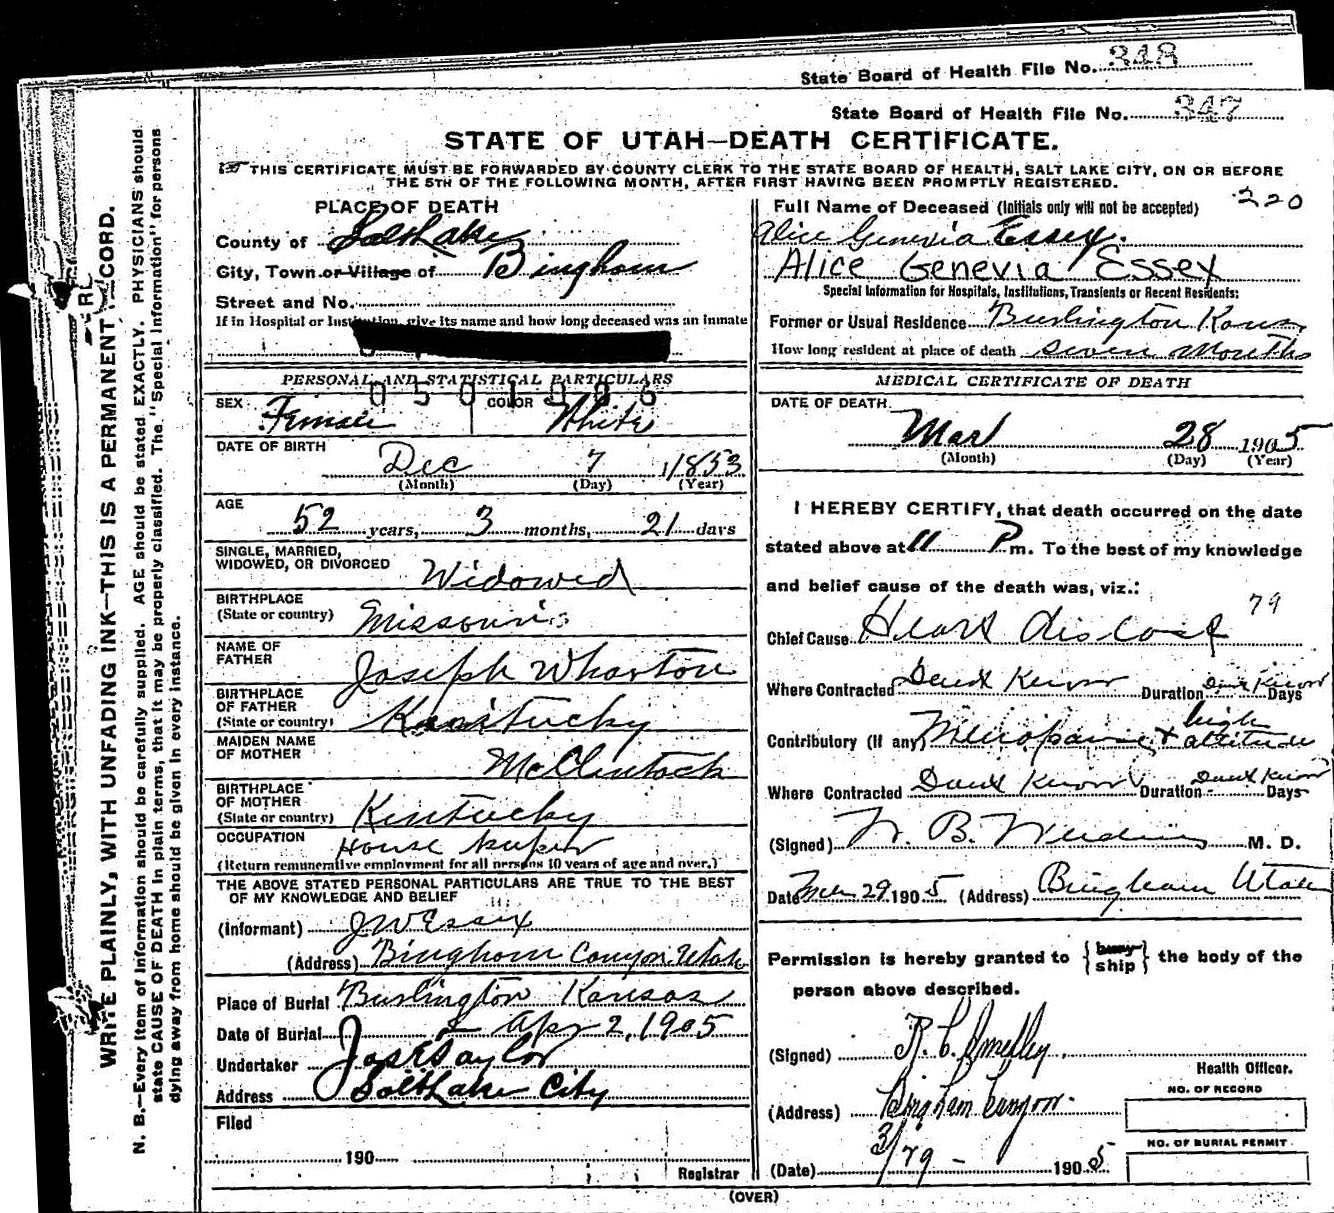 State Board of Health File No. 348
State Board of Health File No. 347
STATE OF UTAH—DEATH CERTIFICATE.
THIS CERTIFICATE MUST BE FORWARDED BY COUNTY CLERK TO THE STATE BOARD OF HEALTH, SALT LAKE CITY, ON OR BEFORE
THE 5TH OF THE FOLLOWING MONTH, AFTER FIRST HAVING BEEN PROMPTLY REGISTERED.
WRITE PLAINLY, WITH UNFADING INK—THIS IS A PERMANENT RECORD.
N. B.—Every item of information should be carefully supplied. AGE should be stated EXACTLY. PHYSICIANS should
state CAUSE OF DEATH in plain terms, that it may be properly classified. The "Special Information" for persons
dying away from home should be given in every instance.
PLACE OF DEATH
County of Salt Lake
City, Town or Village of Bingham
Street and No.
If in Hospital or Institution, give its name and how long deceased was an inmate
PERSONAL AND STATISTICAL PARTICULARS
0501506
SEX Female COLOR White
DATE OF BIRTH
Dec 7 1853
(Month) (Day) (Year)
AGE
52 years, 3 months, 21 days
SINGLE, MARRIED,
WIDOWED, OR DIVORCED Widowed
BIRTHPLACE
(State or country) Missouri
NAME OF
FATHER Joseph Wharton
BIRTHPLACE
OF FATHER
(State or country) Kentucky
MAIDEN NAME
OF MOTHER McClintock
BIRTHPLACE
OF MOTHER
(State or country) Kentucky
OCCUPATION House keeper
(Return remunerative employment for all persons 10 years of age and over.)
THE ABOVE STATED PERSONAL PARTICULARS ARE TRUE TO THE BEST
OF MY KNOWLEDGE AND BELIEF
(Informant) J W Essex
(Address) Bingham Canyon Utah
Place of Burial Burlington Kansas
Date of Burial Apr 2, 1905
Undertaker Jos E Taylor
Address Salt Lake City
Filed
190
Registrar
220
Full Name of Deceased (Initials only will not be accepted)
Alice Genevia Essex.
Alice Genevia Essex
Special Information for Hospitals, Institutions, Transients or Recent Residents:
Former or Usual Residence Burlington Kans
How long resident at place of death seven Months
MEDICAL CERTIFICATE OF DEATH
DATE OF DEATH
Mar 28 1905
(Month) (Day) (Year)
I HEREBY CERTIFY, that death occurred on the date
stated above at 11 P m. To the best of my knowledge
and belief cause of the death was, viz.:
79
Chief Cause Heart disease
Where Contracted Dont Know Duration Dont Know Days
Contributory (If any) Menopause + high altitude
Where Contracted Dont Know Duration Dont Know Days
(Signed) B. M. D.
Date Mar 29 1905 (Address) Bingham Utah
Permission is hereby granted to { bury ship } the body of the
person above described.
(Signed) R. C. Smedley
Health Officer.
(Address) Bingham Canyon.
NO. OF RECORD
(Date) 3/29 - 1905
NO. OF BURIAL PERMIT
(OVER)